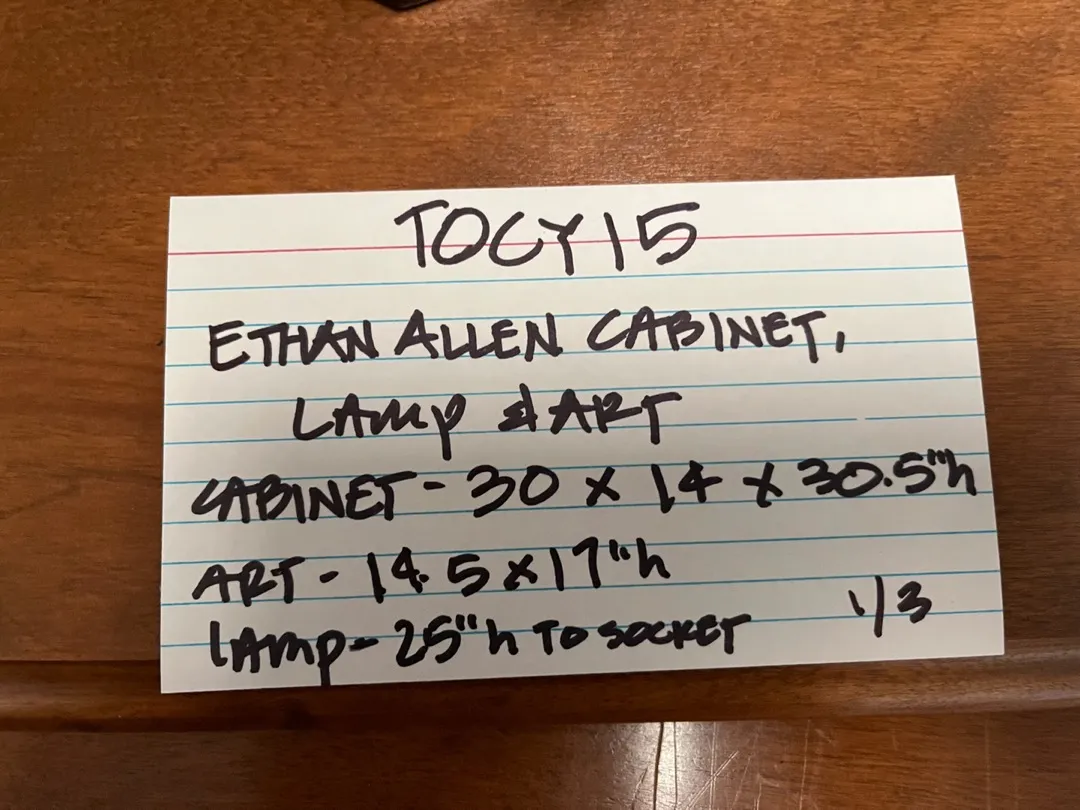 TOCY15
ETHAN ALLEN CABINET,
LAMP & ART
CABINET - 30 x 14 x 30.5"h
ART - 14.5 x 17"h
LAMP - 25"h TO SOCKET 1/3